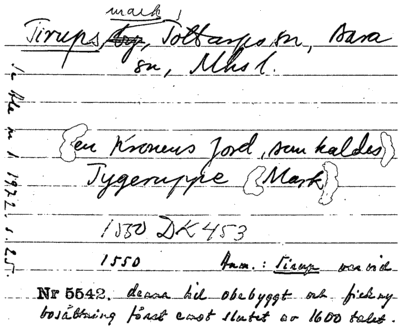 mark,
Tirups by, Tottarps sn, Bara
sn, Mhs l.
en Kronens Jord, som kaldes
Tygeruppe (Mark)
1550 DK 453
1550 Anm.: Tirup var vid
Nr 5542. denna tid obebyggt och fick ny
bosättning först emot slutet av 1600 talet.
Ale n 1 1972. s. 25.